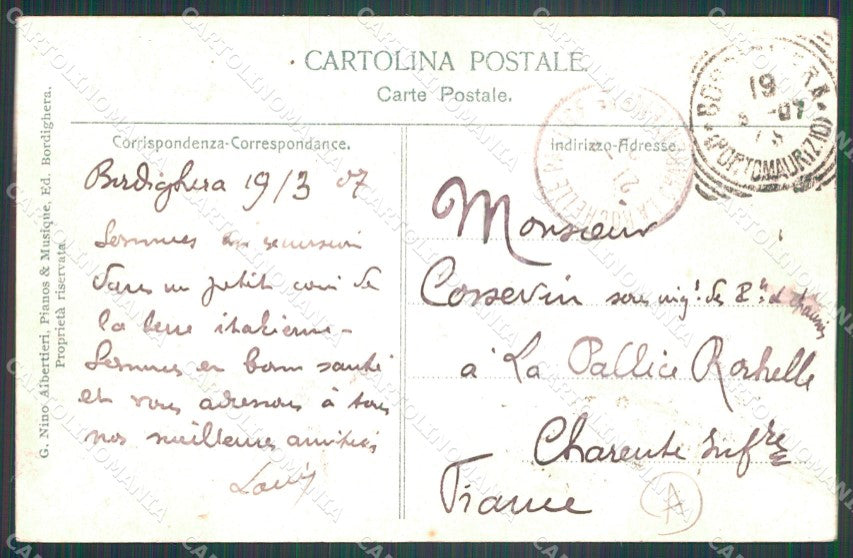 CARTOLINA POSTALE
Carte Postale.
Corrispondenza-Correspondance.
Indirizzo-Adresse.
Bordighera 19/3 07
Sommes en excursion
dans un petit coin de
la terre italienne -
Sommes en bonne santé
et vous adressons à tous
nos meilleures amitiés
Louis
Monsieur
Cossevin sous ing! des P.ts & chaussées
à La Pallice Rochelle
Charente Infre
France
A
G. Nino Albertieri, Pianos & Musique, Ed. Bordighera.
Proprietà riservata.
BORDIGHERA
(PORTOMAURIZIO)
19
07
LA ROCHELLE
21
CARTOLINOMANIA